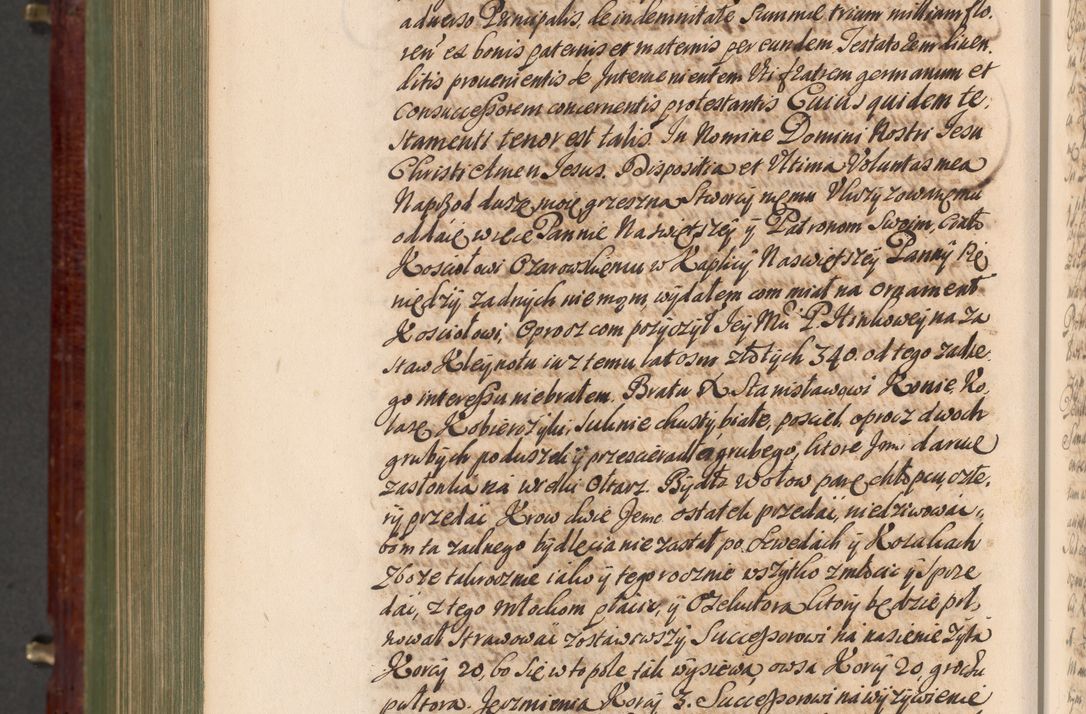 aduerso Principalis, de indemnitate Summae trium millium flo,
ren' ex bonis paternis et maternis per eundem Testatorem diuen,
ditis prouenientis de Interuenientem Uti fratrem germanum et
consuccessorem concernentis protestantis Cuius quidem te,
stamenti tenor est talis. In Nomine Domini Nostri Jesu
Christi Amen Jesus. Dispositia et Ultima Voluntas mea
Naprzod duszę moię grzeszna Stworcy memu
oddaię więc Pannie Naswiętszey y Patronom Swoim, Ciało
Kosciołowi Ozarowskiemu w Kaplicy Naswiętszey Panny Pie
niędzy zadnych niemom, wydałem com miał na ornament
Kosciołowi, Oprocz com pozyczył Jey Mci P. na za
staw Kleynotu iuz temu lat osm złotych 340. od tego zadne
go interessu niebrałem. Bratu X Stanisławowi Konie Ko,
lasę Kobierczyki, Suknie chusty białe, posciel, oprocz dwoch
grubych poduszek y przescieradła grubego, ktore Jem. daruie
zasłonka na wielki Ołtarz. Bydło Wołow parę chłopcu, czte,
ry przedać Krow dwie Jemc ostatek przedać, niedziwować,,
bom ta zadnego bydlęcia nie zastał po Szwedach y Kozakach
Zboze takrocznie iako y tegorocznie wszytko zmłocic y sprze
dać, z tego młockom płacic, y Exekutora ktory będzie pil,
nował strawować zostawiwszy Successorowi na nasienie Zyta
Korcy 20, bo się w to pole tak wysiewa, owsa Korcy 20, grochu
pułtora. Jęczmienia Korcy 3. Successorowi na wyzywienie